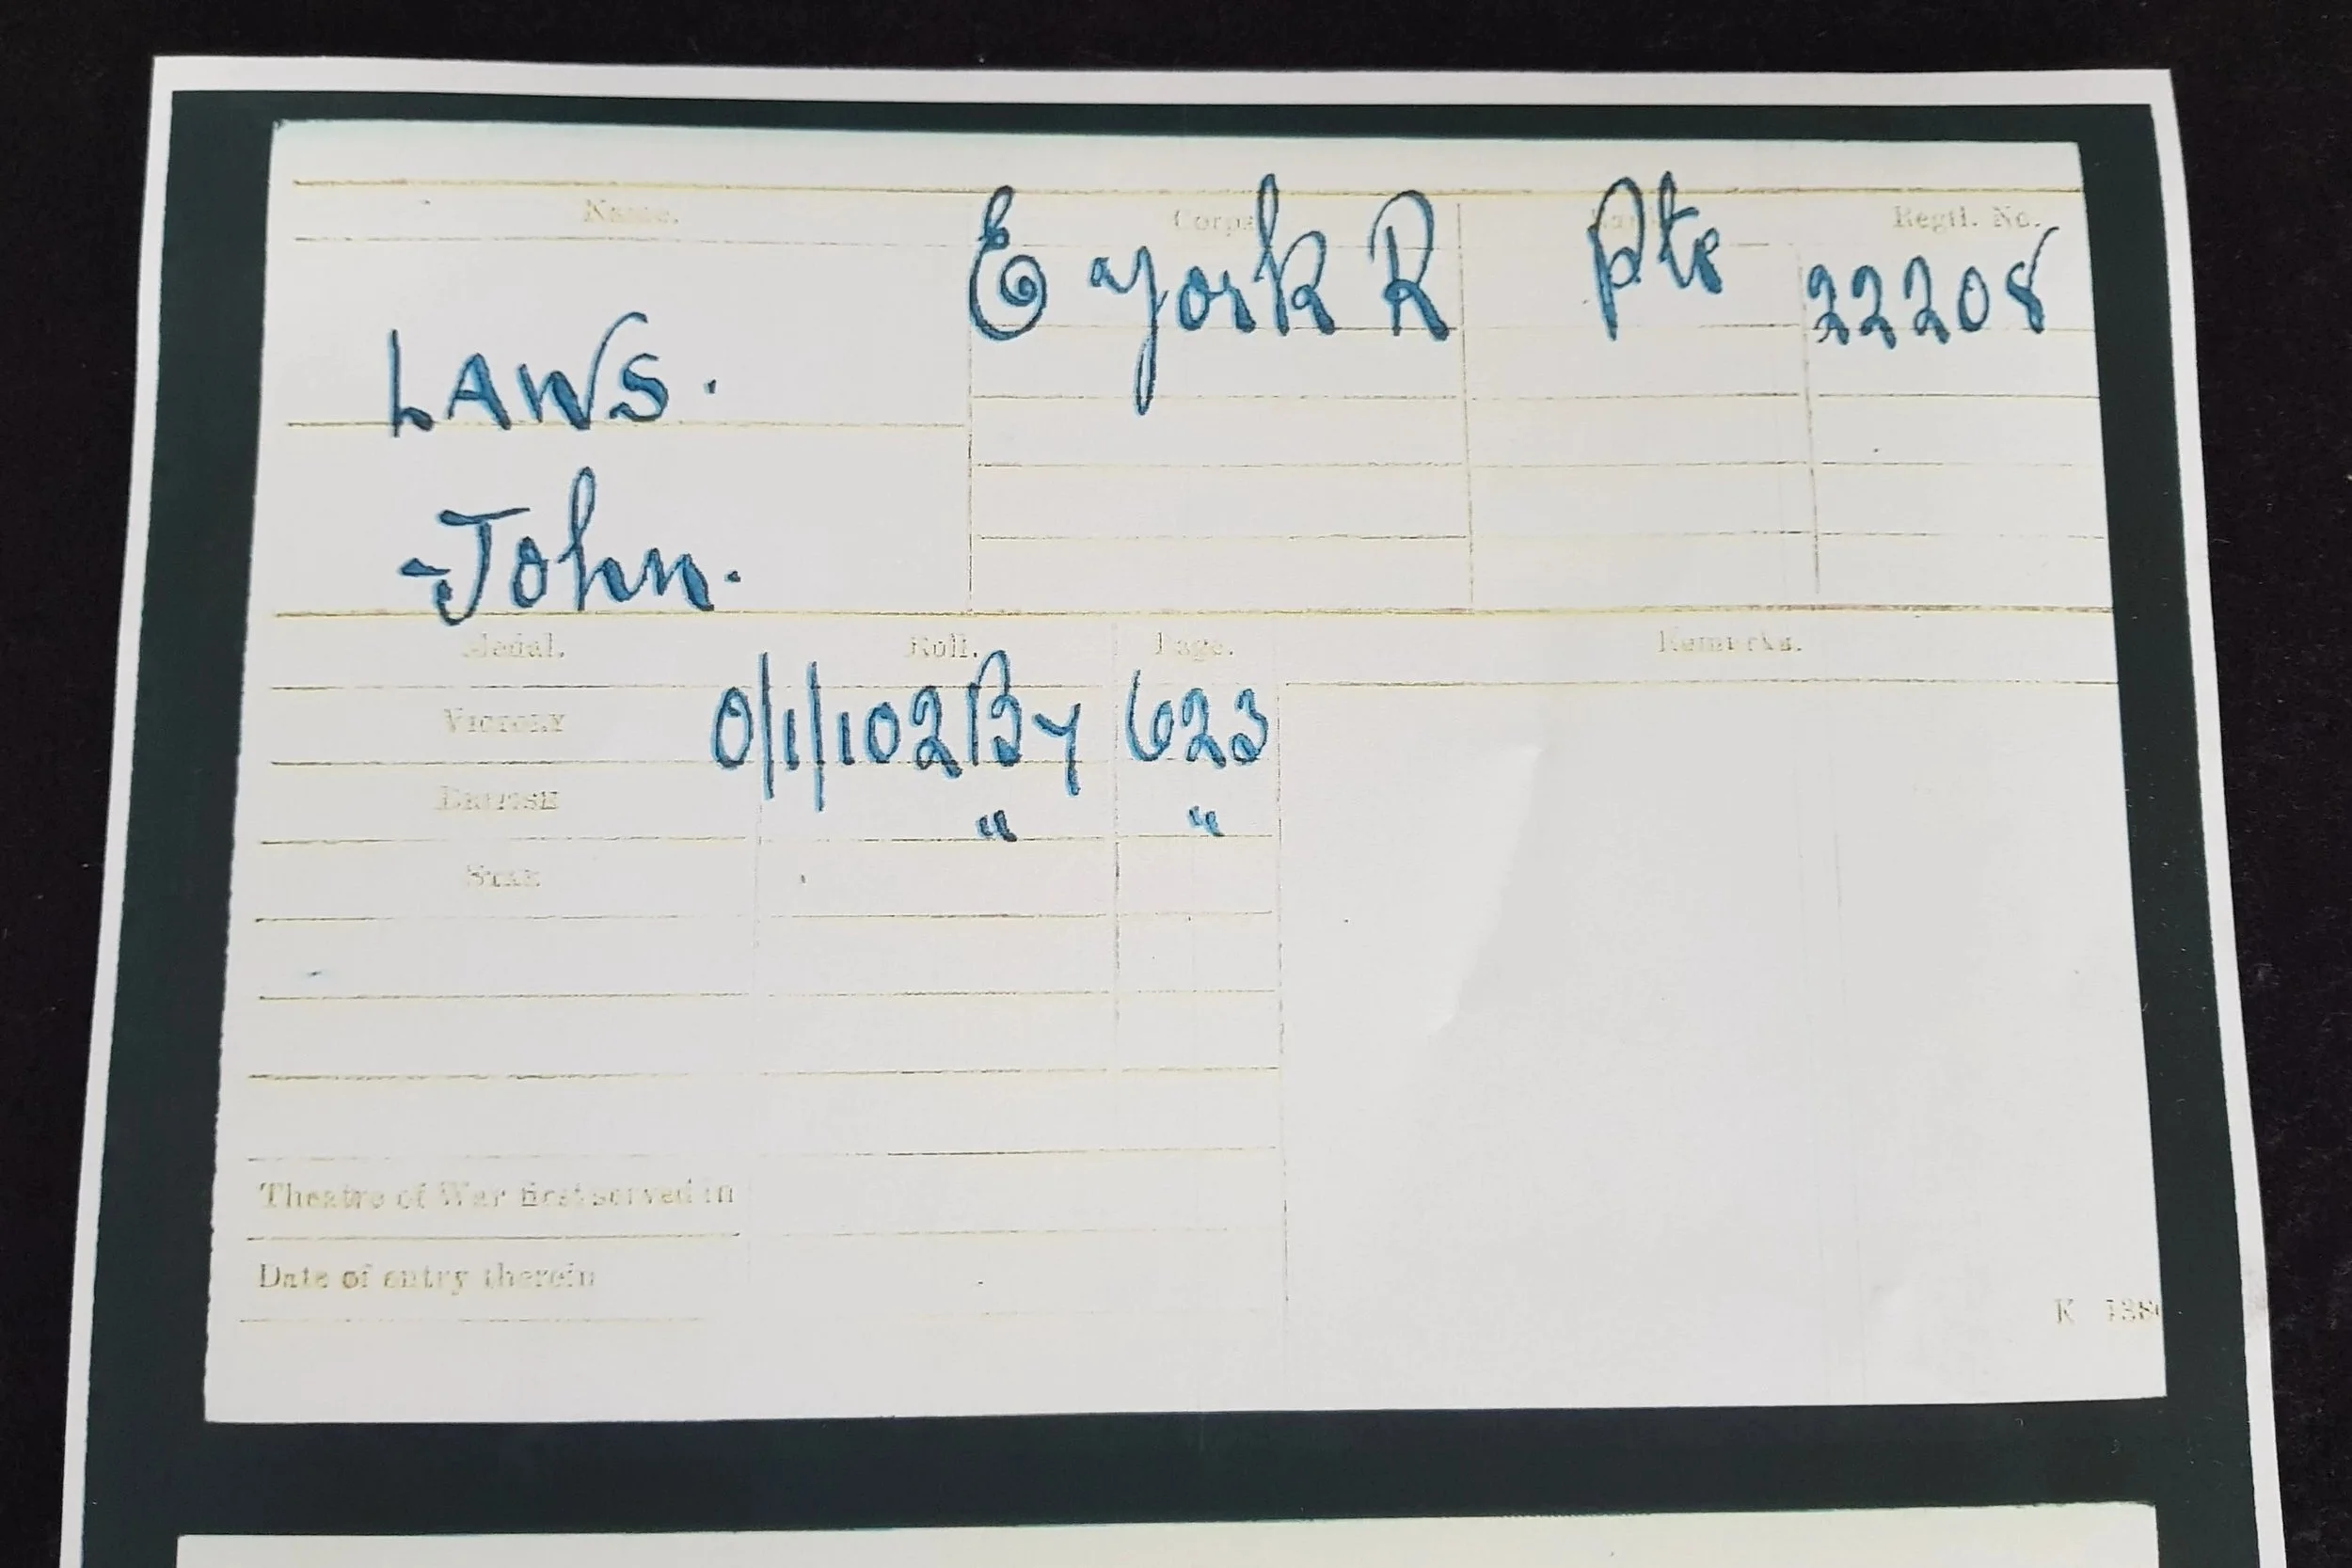 Name. Corps. Rank. Regtl. No.
E york R Pte 22208
LAWS.
-John.
Medal. Roll. Page. Remarks.
VICTORY 0/1/102B7 623
BRITISH " "
STAR
Theatre of War first served in
Date of entry therein
K 138